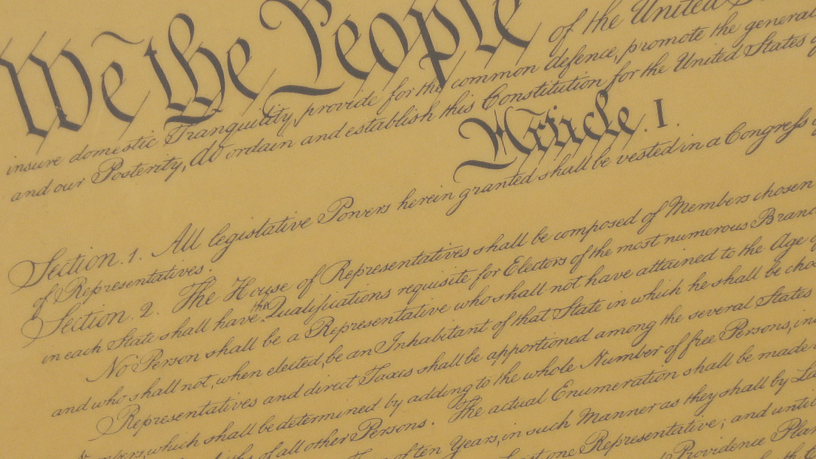 We the People of the United
insure domestic Tranquility, provide for the common defence, promote the general
and our Posterity, do ordain and establish this Constitution for the United States
Article. I.
Section. 1. All legislative Powers herein granted shall be vested in a Congress
of Representatives.
Section. 2. The House of Representatives shall be composed of Members chosen
in each State shall have the Qualifications requisite for Electors of the most numerous Branc
No Person shall be a Representative who shall not have attained to the Age
and who shall not, when elected, be an Inhabitant of that State in which he shall be cho
Representatives and direct Taxes shall be apportioned among the several States
which shall be determined by adding to the whole Number of free Persons, in
of all other Persons. The actual Enumeration shall be made
of ten Years, in such Manner as they shall by La
one Representative; and until
Providence Plan